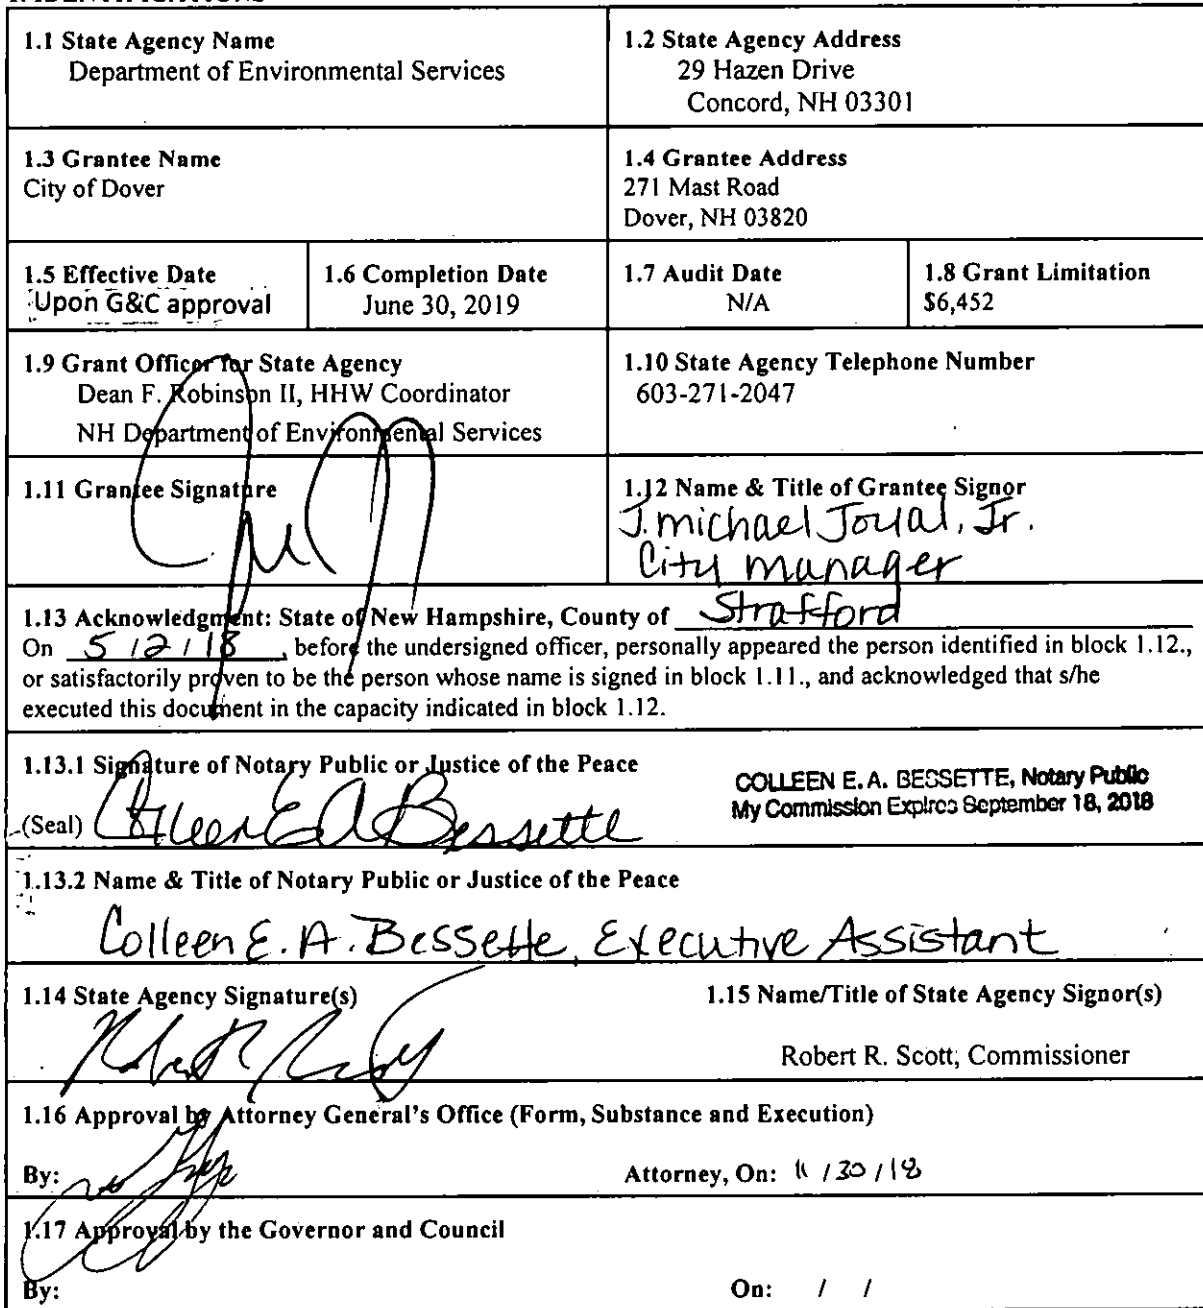 1.1 State Agency Name
Department of Environmental Services
1.2 State Agency Address
29 Hazen Drive
Concord, NH 03301
1.3 Grantee Name
City of Dover
1.4 Grantee Address
271 Mast Road
Dover, NH 03820
1.5 Effective Date
Upon G&C approval
1.6 Completion Date
June 30, 2019
1.7 Audit Date
N/A
1.8 Grant Limitation
$6,452
1.9 Grant Officer for State Agency
Dean F. Robinson II, HHW Coordinator
NH Department of Environmental Services
1.10 State Agency Telephone Number
603-271-2047
1.11 Grantee Signature
1.12 Name & Title of Grantee Signor
J. Michael Joyal, Jr.
City Manager
1.13 Acknowledgment: State of New Hampshire, County of Strafford
On 5/2/18, before the undersigned officer, personally appeared the person identified in block 1.12.,
or satisfactorily proven to be the person whose name is signed in block 1.11., and acknowledged that s/he
executed this document in the capacity indicated in block 1.12.
1.13.1 Signature of Notary Public or Justice of the Peace
(Seal) Colleen E A Bessette
COLLEEN E. A. BESSETTE, Notary Public
My Commission Expires September 18, 2018
1.13.2 Name & Title of Notary Public or Justice of the Peace
Colleen E. A. Bessette, Executive Assistant
1.14 State Agency Signature(s)
1.15 Name/Title of State Agency Signor(s)
Robert R. Scott, Commissioner
1.16 Approval by Attorney General's Office (Form, Substance and Execution)
By:
Attorney, On: 11/30/18
1.17 Approval by the Governor and Council
By:
On: / /